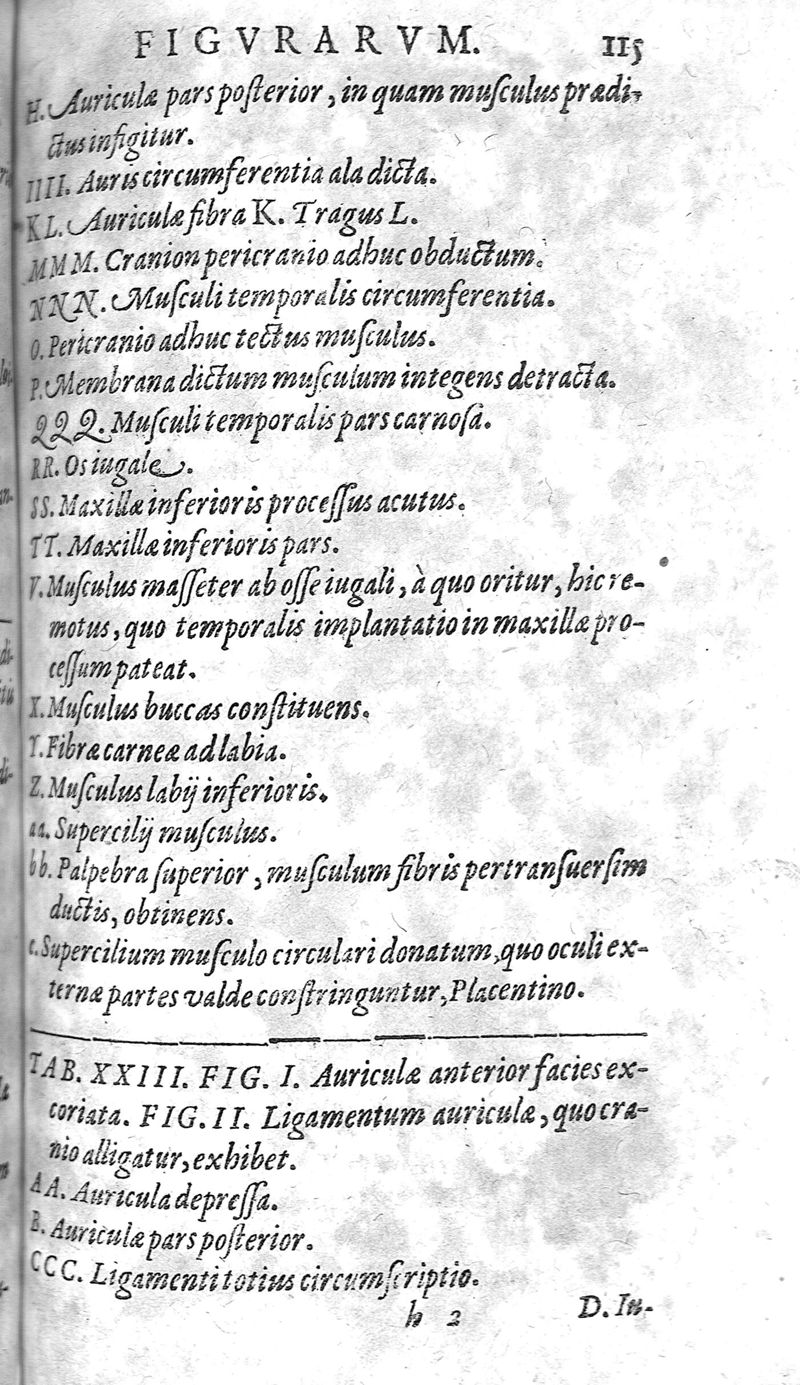 FIGVRARVM. 115
H. Auriculæ pars posterior, in quam musculus prædi-
ctus infigitur.
IIII. Auris circumferentia ala dicta.
KL. Auriculæ fibra K. Tragus L.
MMM. Cranion pericranio adhuc obductum.
NNN. Musculi temporalis circumferentia.
O. Pericranio adhuc tectus musculus.
P. Membrana dictum musculum integens detracta.
QQQ. Musculi temporalis pars carnosa.
RR. Os iugale.
SS. Maxillæ inferioris processus acutus.
TT. Maxillæ inferioris pars.
V. Musculus masseter ab osse iugali, à quo oritur, hic re-
motus, quo temporalis implantatio in maxillæ pro-
cessum pateat.
X. Musculus buccas constituens.
Y. Fibræ carneæ ad labia.
Z. Musculus labij inferioris.
aa. Supercilij musculus.
bb. Palpebra superior, musculum fibris per transuersim
ductis, obtinens.
c. Supercilium musculo circulari donatum, quo oculi ex-
ternæ partes valde constringuntur, Placentino.
TAB. XXIII. FIG. I. Auriculæ anterior facies ex-
coriata. FIG. II. Ligamentum auriculæ, quo cra-
nio alligatur, exhibet.
AA. Auricula depressa.
B. Auriculæ pars posterior.
CCC. Ligamenti totius circumscriptio.
h 2 D. In-